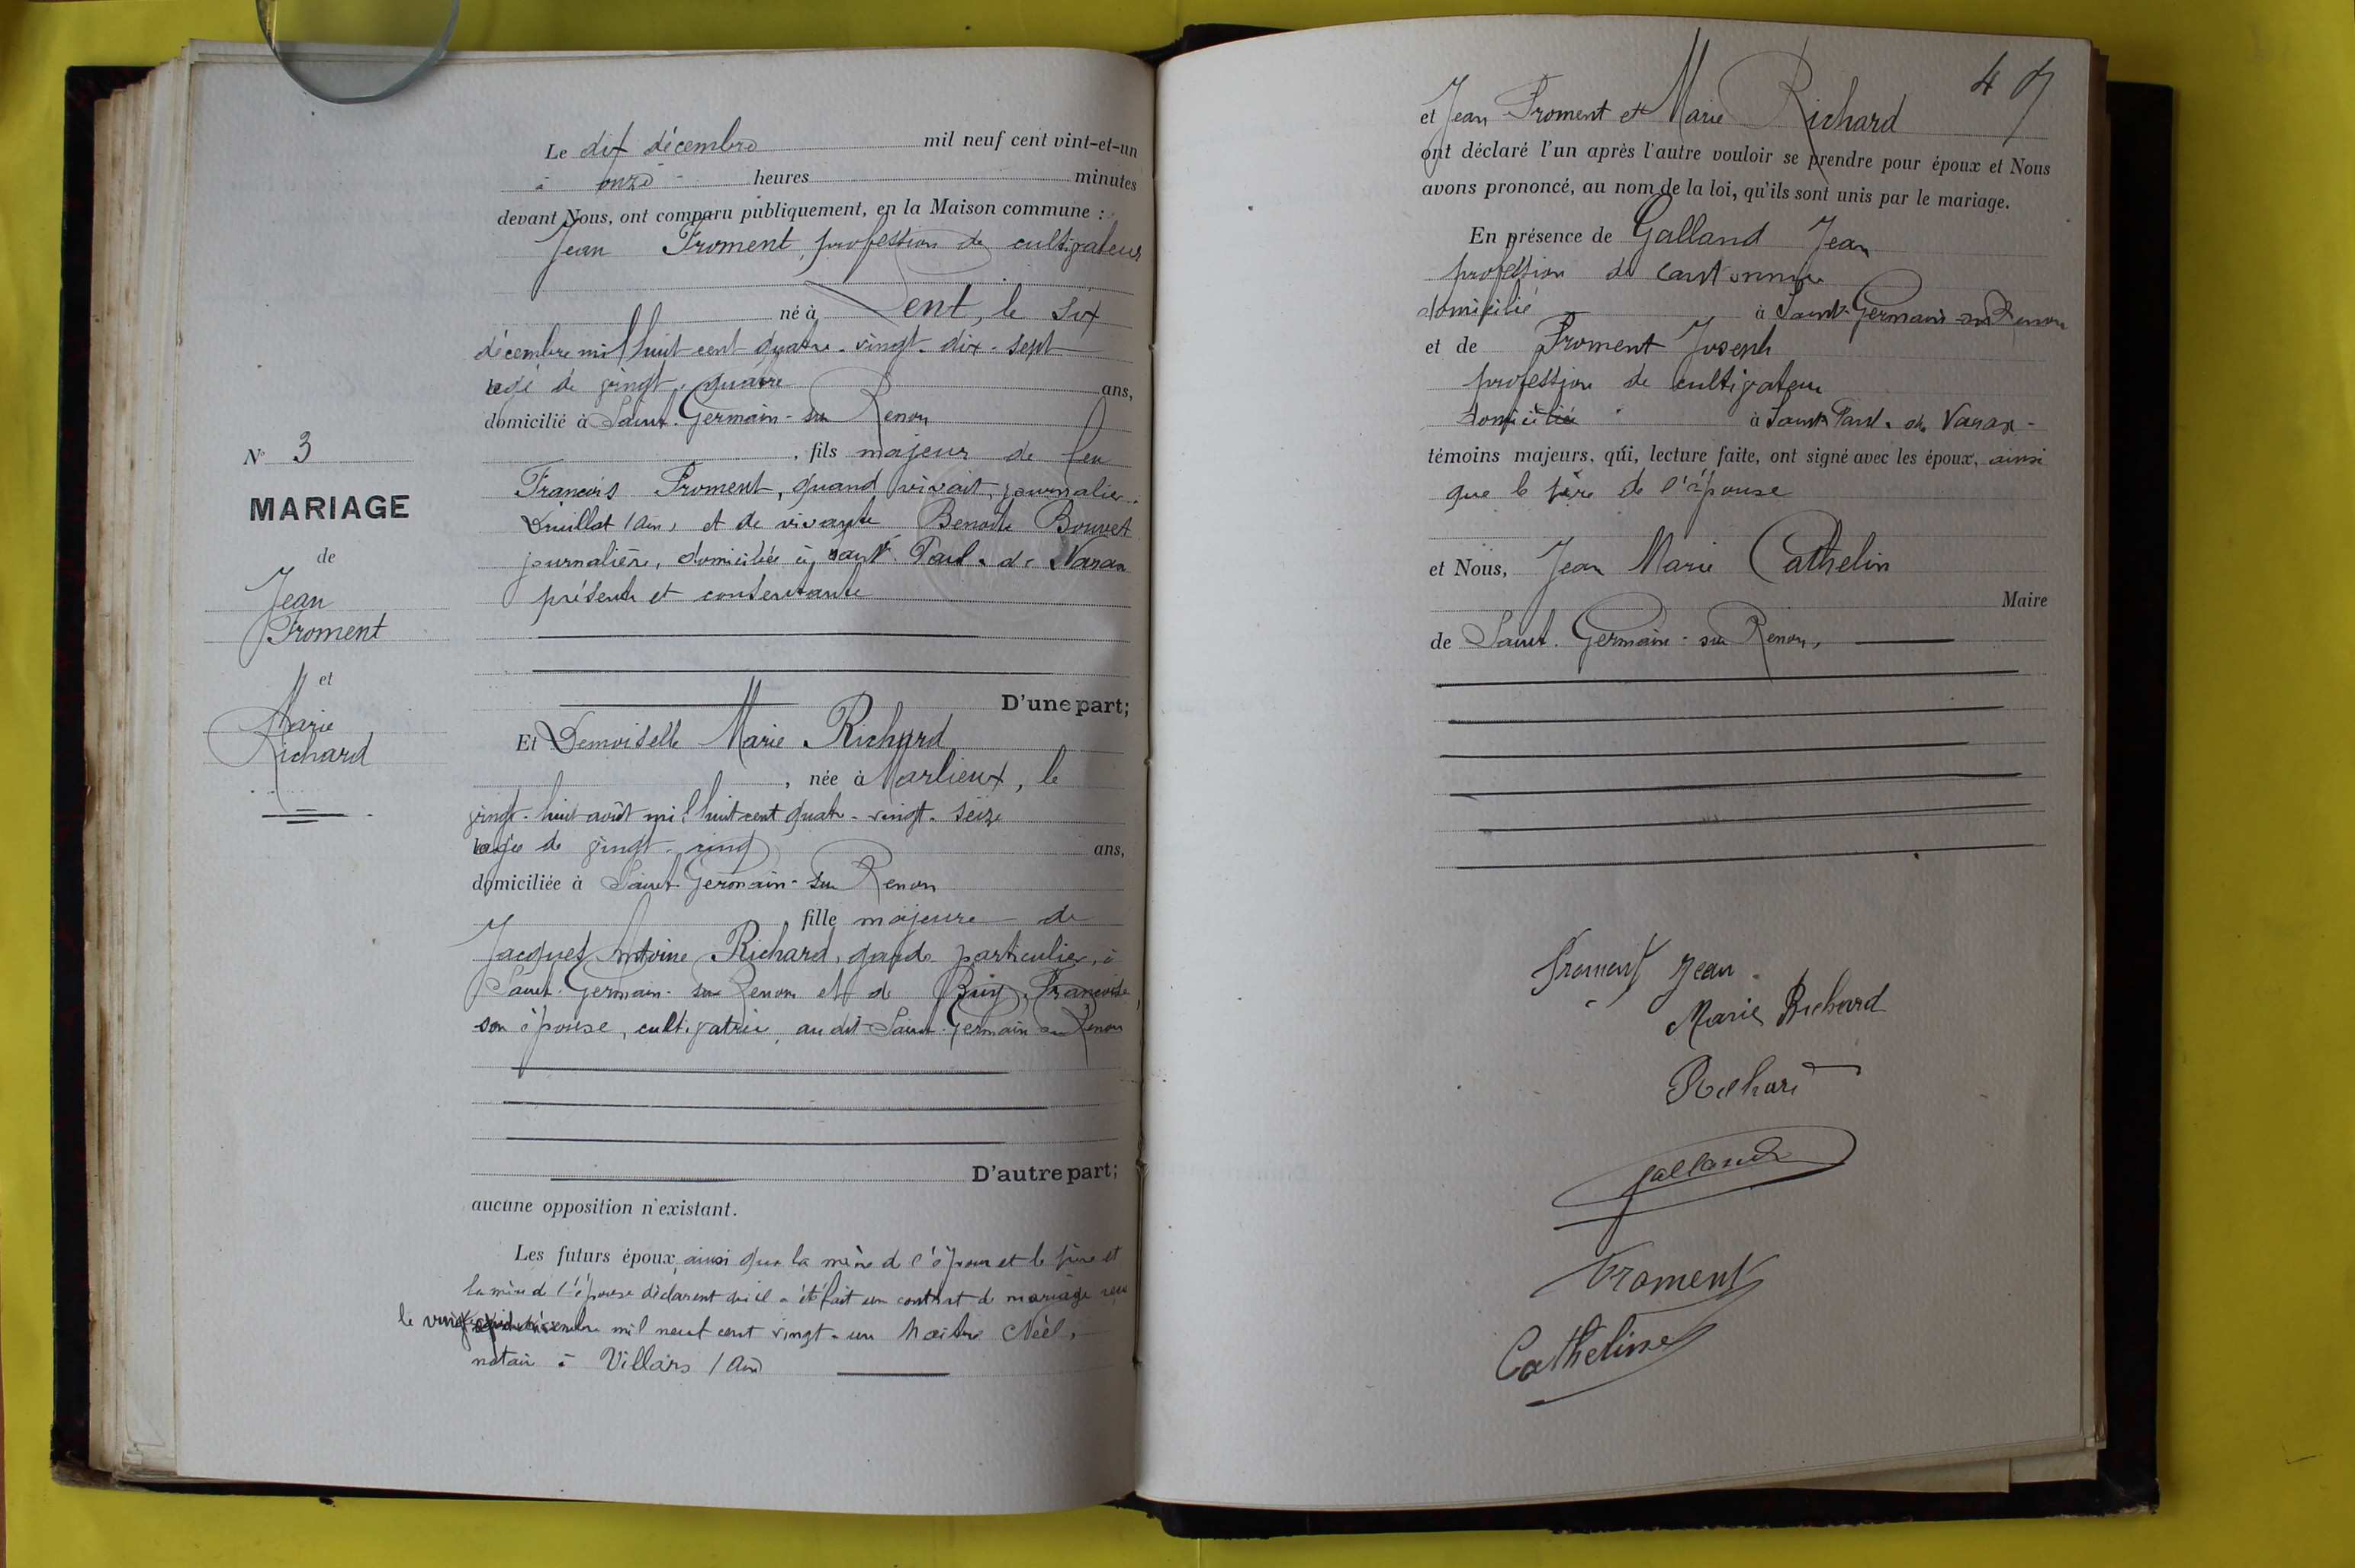 N° 3
MARIAGE
de
Jean
Froment
et
Marie
Richard
Le dix décembre mil neuf cent vint-et-un
à onze heures minutes
devant Nous, ont comparu publiquement, en la Maison commune :
Jean Froment, profession de cultivateur
né à Dent, le six
décembre mil huit cent quatre-vingt-dix-sept
agé de vingt-quatre ans,
domicilié à Saint-Germain-sur Renon
, fils majeur de feu
François Froment, quand vivait, journalier
Druillat (Ain), et de vivante Benoite Bouvet
journalière, domiciliée à Saint-Paul-de Varax
présente et consentante
D'une part;
Et Demoiselle Marie Richard
, née à Marlieux, le
vingt-huit août mil huit cent quatre-vingt-seize
agée de vingt-cinq ans,
domiciliée à Saint-Germain-sur Renon
, fille majeure de
Jacques Antoine Richard, garde particulier, à
Saint-Germain-sur Renon et de Buiy Françoise,
son épouse, cultivatrice, au dit Saint-Germain sur Renon
D'autre part;
aucune opposition n'existant.
Les futurs époux, ainsi que la mère de l'époux et le père et
la mère de l'épouse déclarent qu'il a été fait un contrat de mariage reçu
le mil neuf cent vingt-un Maître Néel,
notaire à Villars (Ain)
47
et Jean Froment et Marie Richard
ont déclaré l'un après l'autre vouloir se prendre pour époux et Nous
avons prononcé, au nom de la loi, qu'ils sont unis par le mariage.
En présence de Galland Jean
profession de cantonnier
domicilié à Saint-Germain-sur Renon
et de Froment Joseph
profession de cultivateur
domicilié à Saint-Paul-de Varax-
témoins majeurs, qui, lecture faite, ont signé avec les époux, ainsi
que le père de l'épouse
et Nous, Jean Marie Cathelin
Maire
de Saint-Germain-sur Renon,
Froment Jean
Marie Richard
Richard
Galland
Froment
Catheline